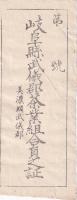 第　號
岐阜縣武儀郡茶業組合員之証
美濃國武儀郡